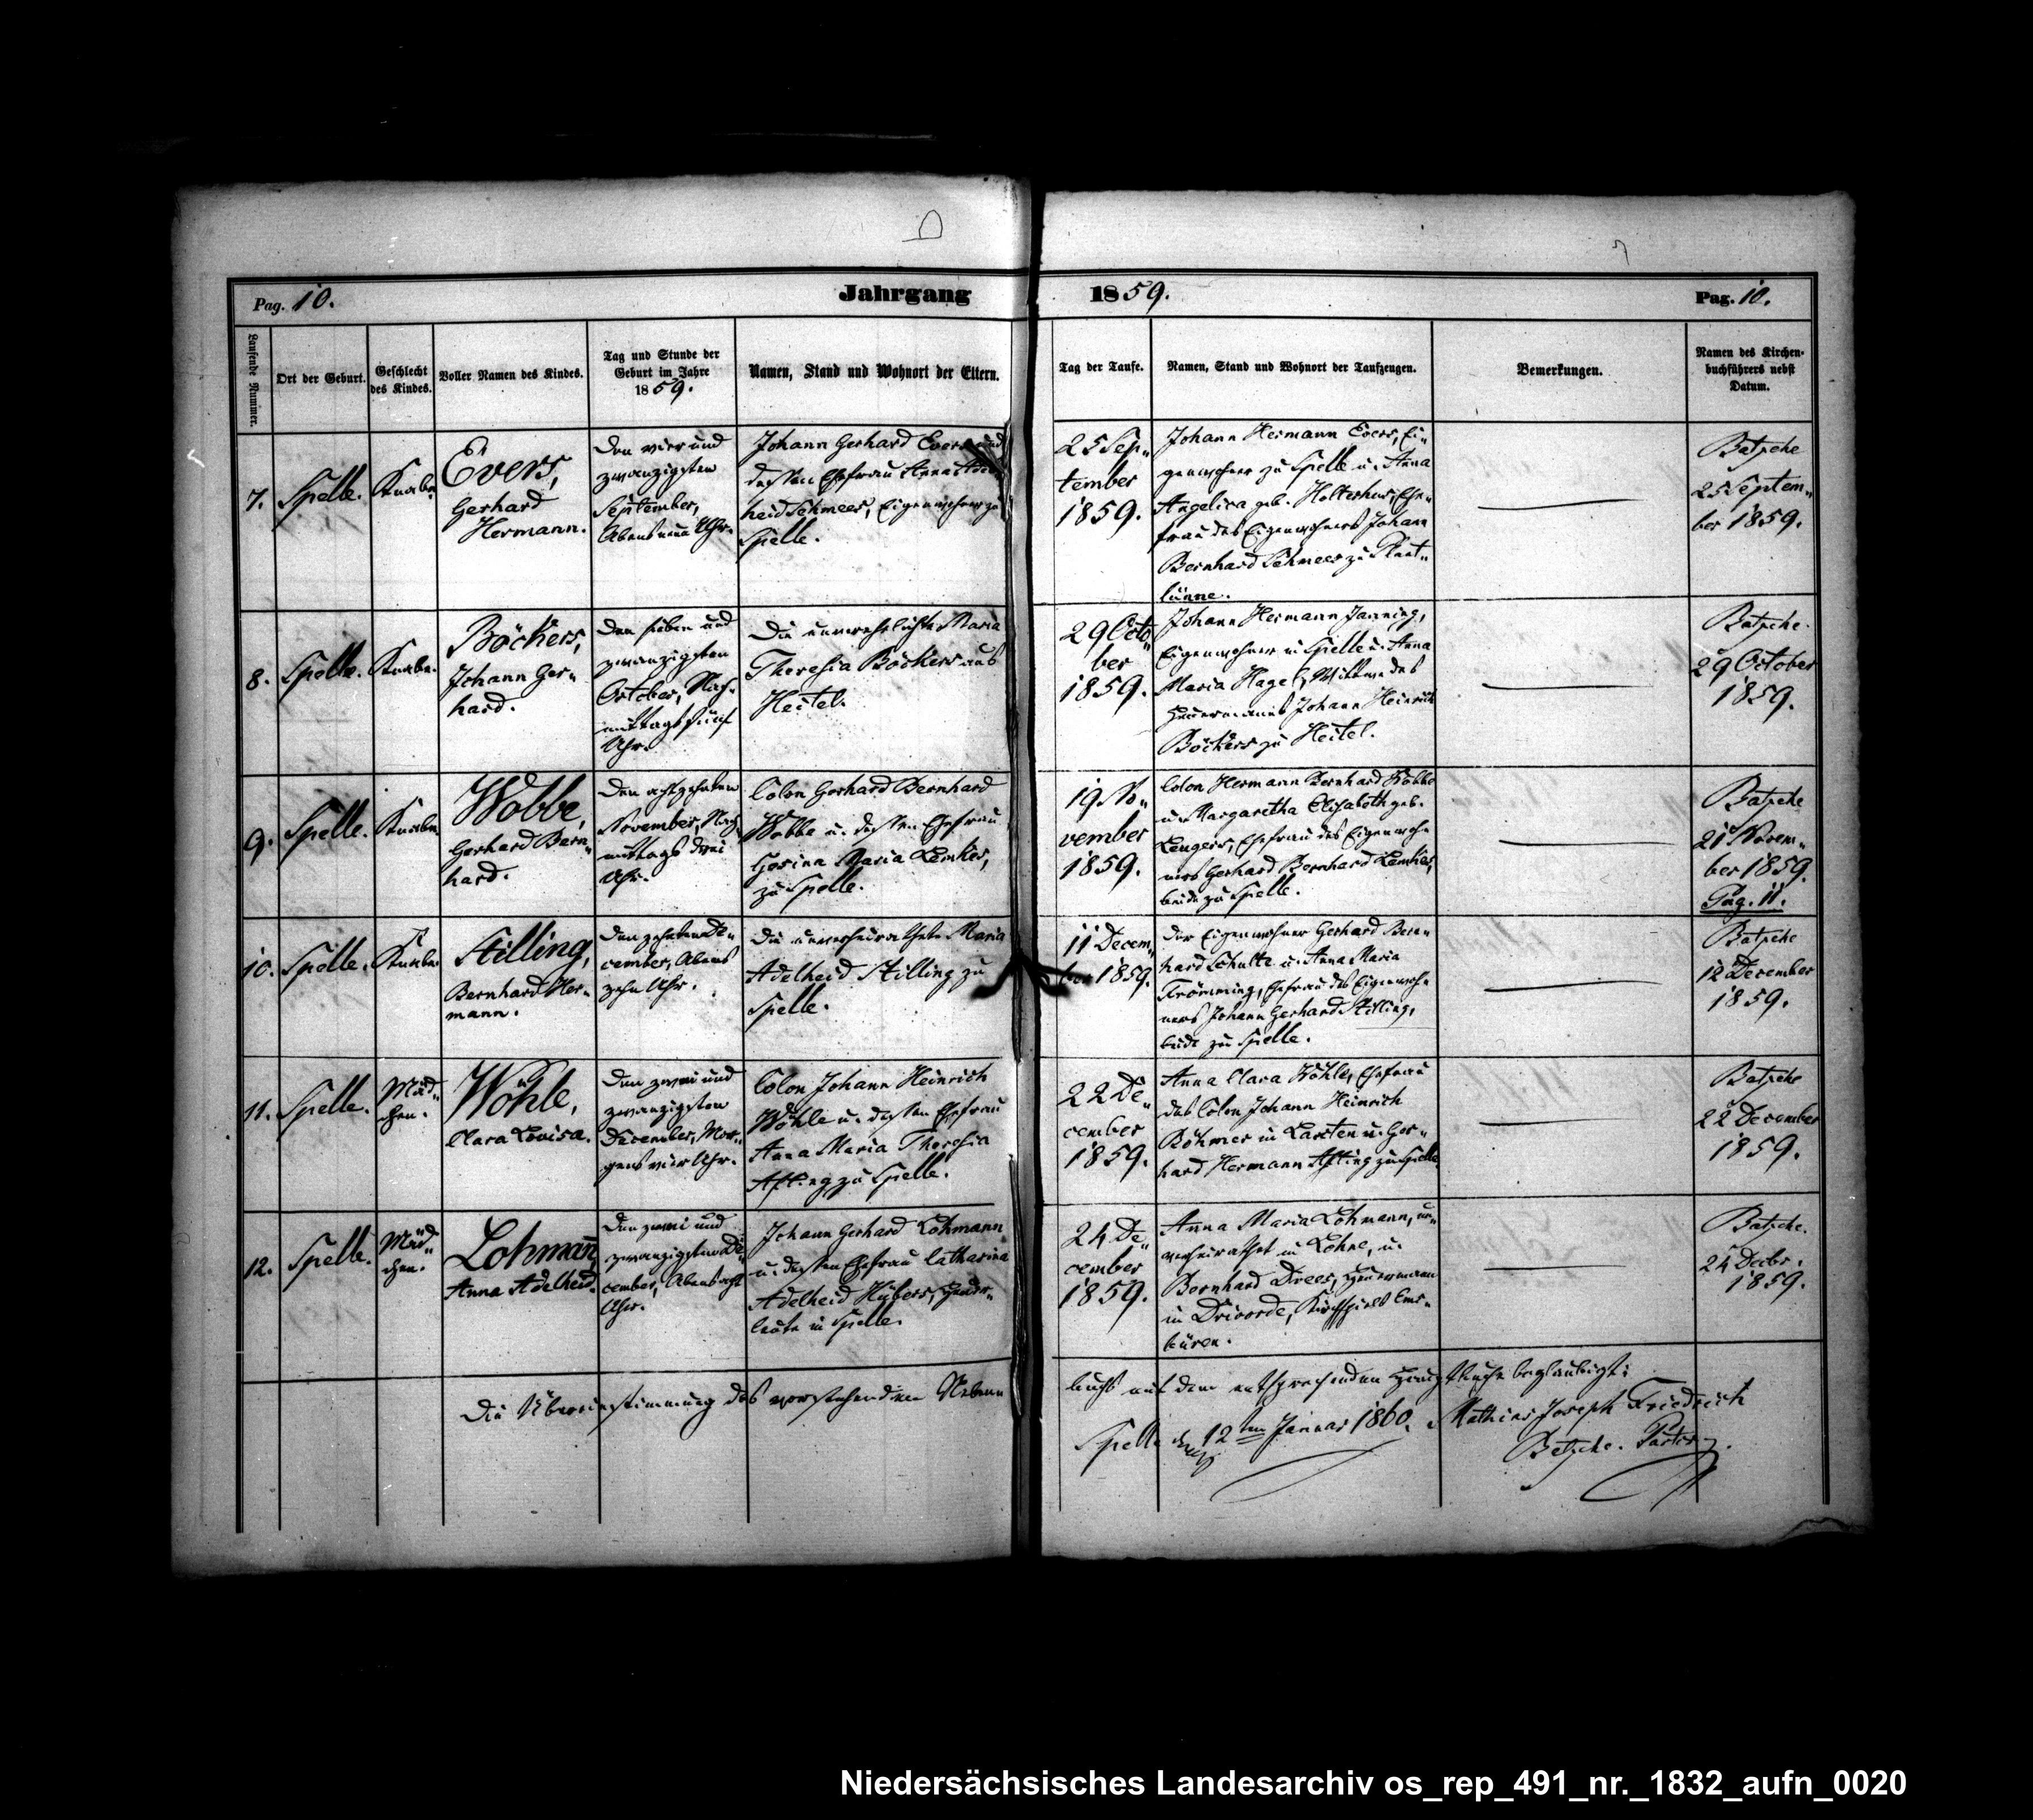 Pag. 10.
Jahrgang 1859.
Pag. 10.
Laufende Nummer.
Ort der Geburt.
Geschlecht
des Kindes.
Voller Namen des Kindes.
Tag und Stunde der
Geburt im Jahre
1859.
Namen, Stand und Wohnort der Eltern.
Tag der Taufe.
Namen, Stand und Wohnort der Taufzeugen.
Bemerkungen.
Namen des Kirchen-
buchführers nebst
Datum.
7.
Spelle.
Knabe.
Evers,
Gerhard
Hermann.
Den vier und
zwanzigsten
September,
Abends neun Uhr.
Johann Gerhard Evers und
dessen Ehefrau Anna Adel
heid Schmees, Eigenwohner zu
Spelle.
25 Sep„
tember
1859.
Johann Hermann Evers, Ei„
genwohner zu Spelle u. Anna
Angelica geb. Holterhus, Ehe„
frau des Eigenwohners Johann
Bernhard Schmees zu Plant„
lünne.
Batsche
25 Septem„
ber 1859.
8.
Spelle.
Knabe.
Böckers,
Johann Ger„
hard.
Den sieben und
zwanzigsten
October, Nach„
mittags fünf
Uhr.
Die unverehelichte Maria
Theresia Böckers aus
Heitel.
29 Octo„
ber
1859.
Johann Hermann Janning,
Eigenwohner in Spelle u. Anna
Maria Hagel, Wittwe des
Heuermanns Johann Heinrich
Böckers zu Heitel.
Batsche.
29 October
1859.
9.
Spelle.
Knabe.
Wobbe,
Gerhard Bern„
hard.
Den achtzehnten
November, Nach„
mittags drei
Uhr.
Colon Gerhard Bernhard
Wobbe u. dessen Ehefrau
Gesina Maria Lemker,
zu Spelle.
19 No„
vember
1859.
Colon Hermann Bernhard Wobbe
u. Margaretha Elisabeth geb.
Lengers, Ehefrau des Eigenwoh„
ners Gerhard Bernhard Lemker,
beide zu Spelle.
Batsche
21 Novem„
ber 1859.
Pag. 11.
10.
Spelle.
Knabe.
Stilling,
Bernhard Her„
mann.
Den zehnten De„
cember, Abends
zehn Uhr.
Die unverheirathete Maria
Adelheid Stilling zu
Spelle.
11 Decem„
ber 1859.
Der Eigenwohner Gerhard Bern„
hard Schulte u. Anna Maria
Krömming, Ehefrau des Eigenwoh„
ners Johann Gerhard Stilling,
beide zu Spelle.
Batsche
12 December
1859.
11.
Spelle.
Mäd„
chen.
Wöhle,
Clara Lovisa.
Den zwei und
zwanzigsten
December, Mor„
gens vier Uhr.
Colon Johann Heinrich
Wöhle u. dessen Ehefrau
Anna Maria Theresia
Afting zu Spelle.
22 De„
cember
1859.
Anna Clara Wöhle, Ehefrau
des Colon Johann Heinrich
Böhmer in Larsten u. Ger„
hard Hermann Afting zu Spelle
Batsche
22 December
1859.
12.
Spelle.
Mäd„
chen.
Lohmann,
Anna Adelheid.
Den zwei und
zwanzigsten De„
cember, Abends acht
Uhr.
Johann Gerhard Lohmann
u. dessen Ehefrau Catharina
Adelheid Hübers, Heuer„
leute in Spelle.
24 De„
cember
1859.
Anna Maria Lohmann, un„
verheirathet in Lohne, u.
Bernhard Drees, Heuermann
in Drivorde, Kirchspiels Ems„
büren.
Batsche.
24 Decbr.
1859.
Die Übereinstimmung des vorstehenden Neben
buchs mit dem entsprechenden Hauptbuche beglaubigt:
Spelle den 12ten Januar 1860. Mathias Joseph Friedrich
Batsche. Pastor.
Niedersächsisches Landesarchiv os_rep_491_nr._1832_aufn_0020